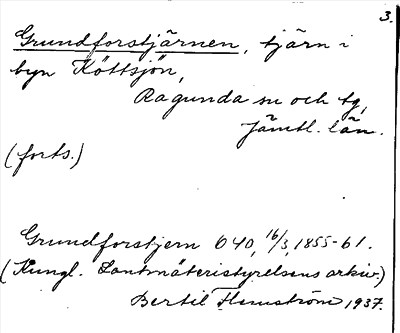 3.
Grundforstjärnen, tjärn i
byn Köttsjön,
Ragunda sn och tg,
Jämtl. län.
(forts.)
Grundforstjern 640, 16/3, 1855-61.
(Kungl. Lantmäteristyrelsens arkiv.)
Bertil Flemström 1937.